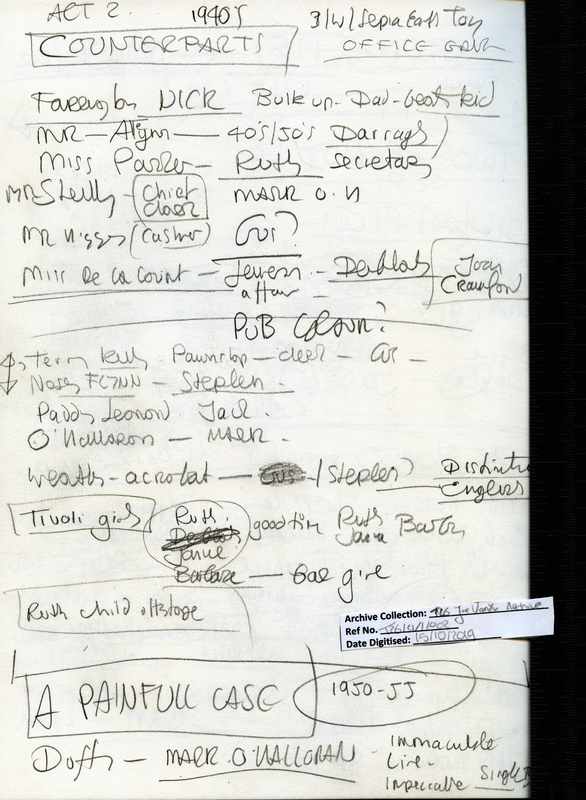 ACT 2. 1940's
COUNTERPARTS
OFFICE
NICK Built up - Dad - beats kid
MR - Alleyn - 40's/50's Darragh
Miss Parker - Ruth secretary
MR Shelly - Chief MARK O.H
MR Higgs (Cashier) Gus?
Miss De La Count - Jewess - Deablah Joan
affair Crawford
PUB CROWD?
Terry Kelly Pawnshop - clerk - Gus -
Nosey FLYNN - Stephen.
Paddy Leonard Jack
O'Halloran - MARK.
Weather - acrobat - Gus - / Stephen?
Tivoli girls Ruth. good time Ruth
Janice Barbara
Janice
Barbara - Bar girl
Ruth child offstage
Archive Collection:
Ref No.
Date Digitised: 15/10/2019
A PAINFULL CASE 1950-55
Duffy - MARK O'HALLORAN - immaculate
Line -
impeccable